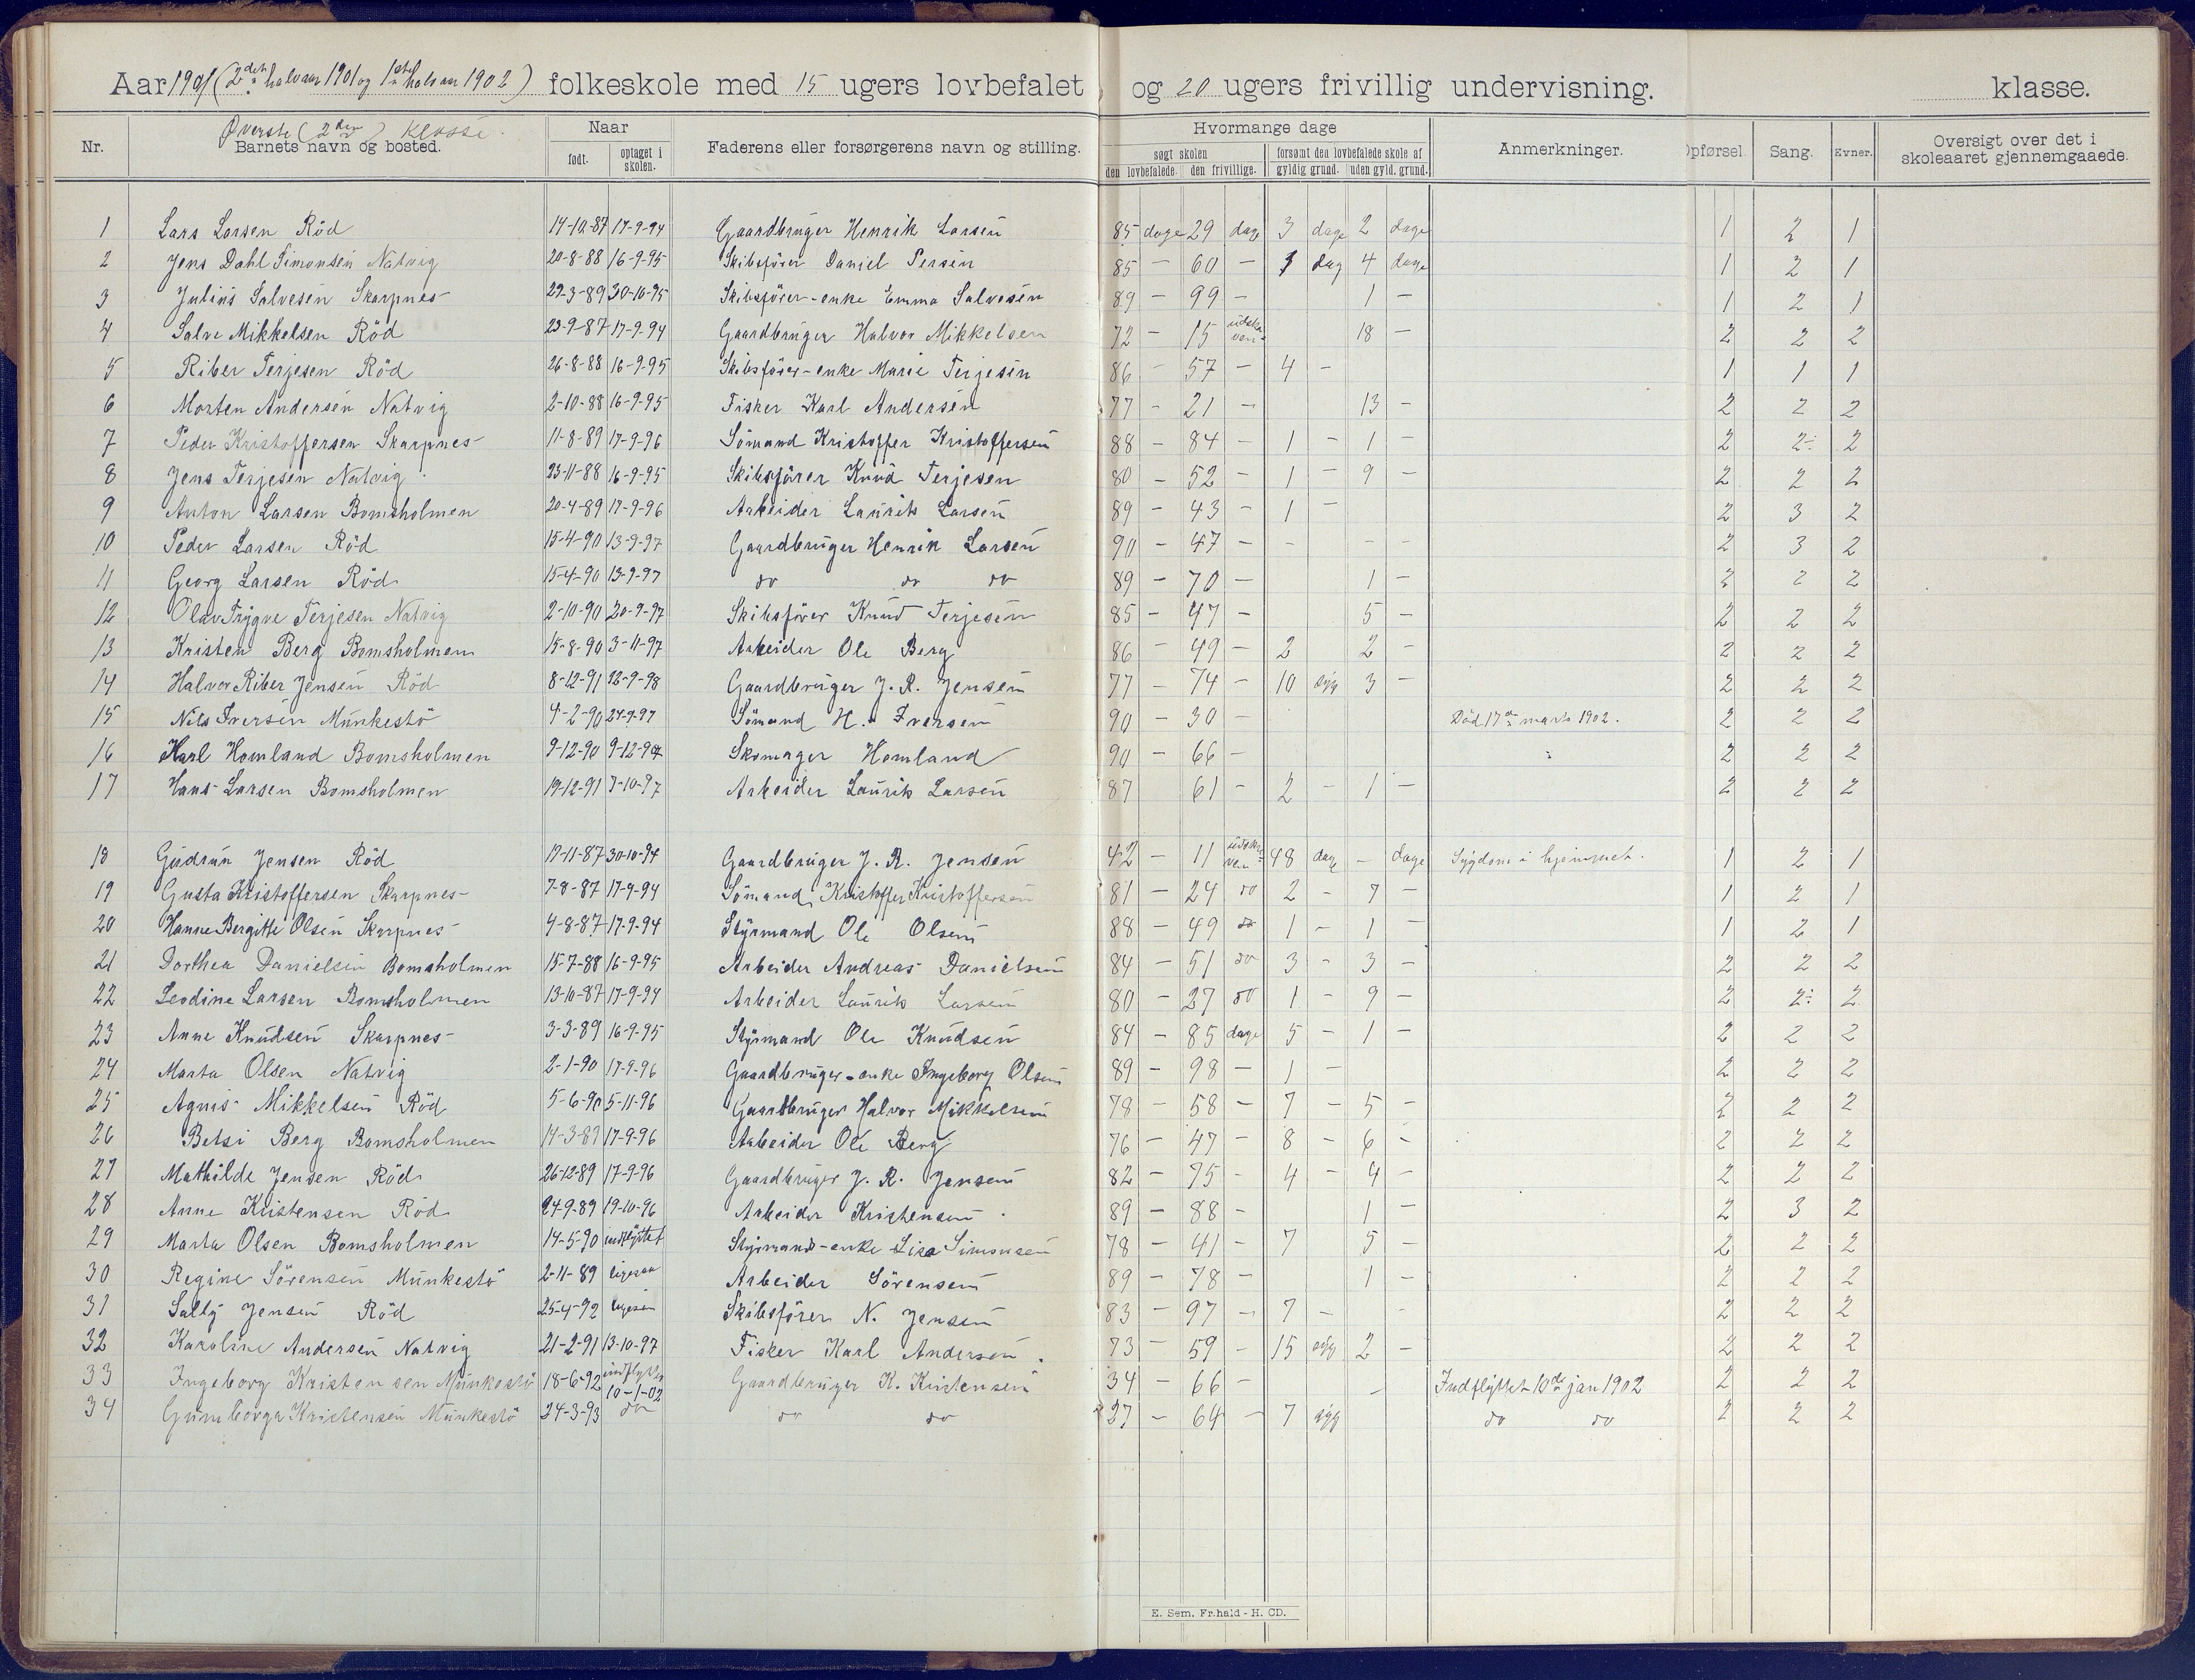 Aar 1901 (2det halvaar 1901 og 1ste halvaar 1902) folkeskole med 15 ugers lovbefalet og 20 ugers frivillig undervisning. klasse.
Øverste (2den) klasse.
Nr. Barnets navn og bosted. Naar født. optaget i skolen. Faderens eller forsørgerens navn og stilling. Hvormange dage søgt skolen den lovbefalede. den frivillige. forsømt den lovbefalede skole af gyldig grund. uden gyld. grund. Anmerkninger. Opførsel. Sang. Evner. Oversigt over det i skoleaaret gjennemgaaede.
1 Lars Larsen Röd 14-10-87 17-9-94 Gaardbruger Henrik Larsen 85 dage 29 dage 3 dage 2 dage 1 2 1
2 Jens Dahl Simonsen Natvig 20-8-88 16-9-95 Skibsförer Daniel 85 - 60 - 1 dag 4 dage 1 2 1
3 Julius Salvesen Skarpnes 29-3-89 30-10-95 Skibsförer-enke Emma Salvesen 89 - 99 - 1 - 1 2 1
4 Salve Mikkelsen Röd 23-9-87 17-9-94 Gaardbruger Halvor Mikkelsen 72 - 15 18 - 2 2 2
5 Riber Terjesen Röd 26-8-88 16-9-95 Skibsförer-enke Marie Terjesen 86 - 57 - 4 - 1 1 1
6 Morten Andersen Natvig 2-10-88 16-9-95 Fisker Karl Andersen 77 - 21 - 13 - 2 2 2
7 Peder Kristoffersen Skarpnes 11-8-89 17-9-96 Sömand Kristoffer Kristoffersen 88 - 84 - 1 - 1 - 2 2÷ 2
8 Jens Terjesen Natvig 23-11-88 16-9-95 Skibsförer Knud Terjesen 80 - 52 - 1 - 9 - 2 2 2
9 Anton Larsen Bomsholmen 20-4-89 17-9-96 Arbeider Laurits Larsen 89 - 43 - 1 - 2 3 2
10 Peder Larsen Röd 15-4-90 13-9-97 Gaardbruger Henrik Larsen 90 - 47 - - - - 2 3 2
11 Georg Larsen Röd 15-4-90 13-9-97 do do do 89 - 70 - 1 - 2 2 2
12 Olav Trygve Terjesen Natvig 2-10-90 20-9-97 Skibsförer Knud Terjesen 85 - 47 - 5 - 2 2 2
13 Kristen Berg Bomsholmen 15-8-90 3-11-97 Arbeider Ole Berg 86 - 49 - 2 2 - 2 2 2
14 Halvor Riber Jensen Röd 8-12-91 12-9-98 Gaardbruger J. R. Jensen 77 - 74 - 10 syg 3 - 2 2 2
15 Nils Iversen Munkestö 4-2-90 24-9-97 Sömand H. Iversen 90 - 30 - Död 17de marts 1902. 2 2 2
16 Karl Homland Bomsholmen 9-12-90 9-12-97 Skomager Homland 90 - 66 - 2 2 2
17 Hans Larsen Bomsholmen 19-12-91 7-10-97 Arbeider Laurits Larsen 87 61 - 2 - 1 - 2 2 2
18 Gudrun Jensen Röd 19-11-87 30-10-94 Gaardbruger J. R. Jensen 42 - 11 48 dage - dage Sygdom i hjemmet. 1 2 1
19 Gusta Kristoffersen Skarpnes 7-8-87 17-9-94 Sömand Kristoffer Kristoffersen 81 - 24 do 2 - 7 - 1 2 1
20 Hanne Bergitte Olsen Skarpnes 4-8-87 17-9-94 Styrmand Ole Olsen 88 - 49 do 1 - 1 - 1 2 1
21 Dorthea Danielsen Bomsholmen 15-7-88 16-9-95 Arbeider Andreas Danielsen 84 - 51 do 3 - 3 - 2 2 2
22 Leodine Larsen Bomsholmen 13-10-87 17-9-94 Arbeider Laurits Larsen 80 - 27 do 1 - 9 - 2 2÷ 2
23 Anne Knudsen Skarpnes 3-3-89 16-9-95 Styrmand Ole Knudsen 84 - 85 dage 5 - 1 - 2 2 2
24 Marta Olsen Natvig 2-1-90 17-9-96 Gaardbruger-enke Ingeborg Olsen 89 - 98 - 1 - 2 2 2
25 Agnes Mikkelsen Röd 5-6-90 5-11-96 Gaardbruger Halvor Mikkelsen 78 - 58 - 7 - 5 - 2 2 2
26 Betsi Berg Bomsholmen 14-3-89 17-9-96 Arbeider Ole Berg 76 - 47 - 8 - 6 - 2 2 2
27 Mathilde Jensen Röd 26-12-89 17-9-96 Gaardbruger J. R. Jensen 82 - 75 - 4 - 4 - 2 2 2
28 Anne Kristensen Röd 24-9-89 19-10-96 Arbeider Kristensen 89 - 88 - 1 - 2 3 2
29 Marta Olsen Bomsholmen 14-5-90 indflyttet Styrmand-enke Lisa Simonsen 78 - 41 - 7 5 - 2 2 2
30 Regine Sörensen Munkestö 2-11-89 ligesaa Arbeider Sörensen 89 - 78 - 1 - 2 2 2
31 Sally Jensen Röd 25-4-92 ligesaa Skibsförer N. Jensen 83 - 97 - 7 - - 2 2 2
32 Karoline Andersen Natvig 21-2-91 13-10-97 Fisker Karl Andersen 73 - 59 - 15 syg 2 - 2 2 2
33 Ingeborg Kristensen Munkestö 18-6-92 indflyttet 10-1-02 Gaardbruger K. Kristensen 34 - 66 - - Indflyttet 10de jan 1902 2 2 2
34 Gunnborga Kristensen Munkestö 24-3-93 do do do 27 - 64 - 7 syg do do 2 2 2
E. Sem, Fr.hald - H. CD.